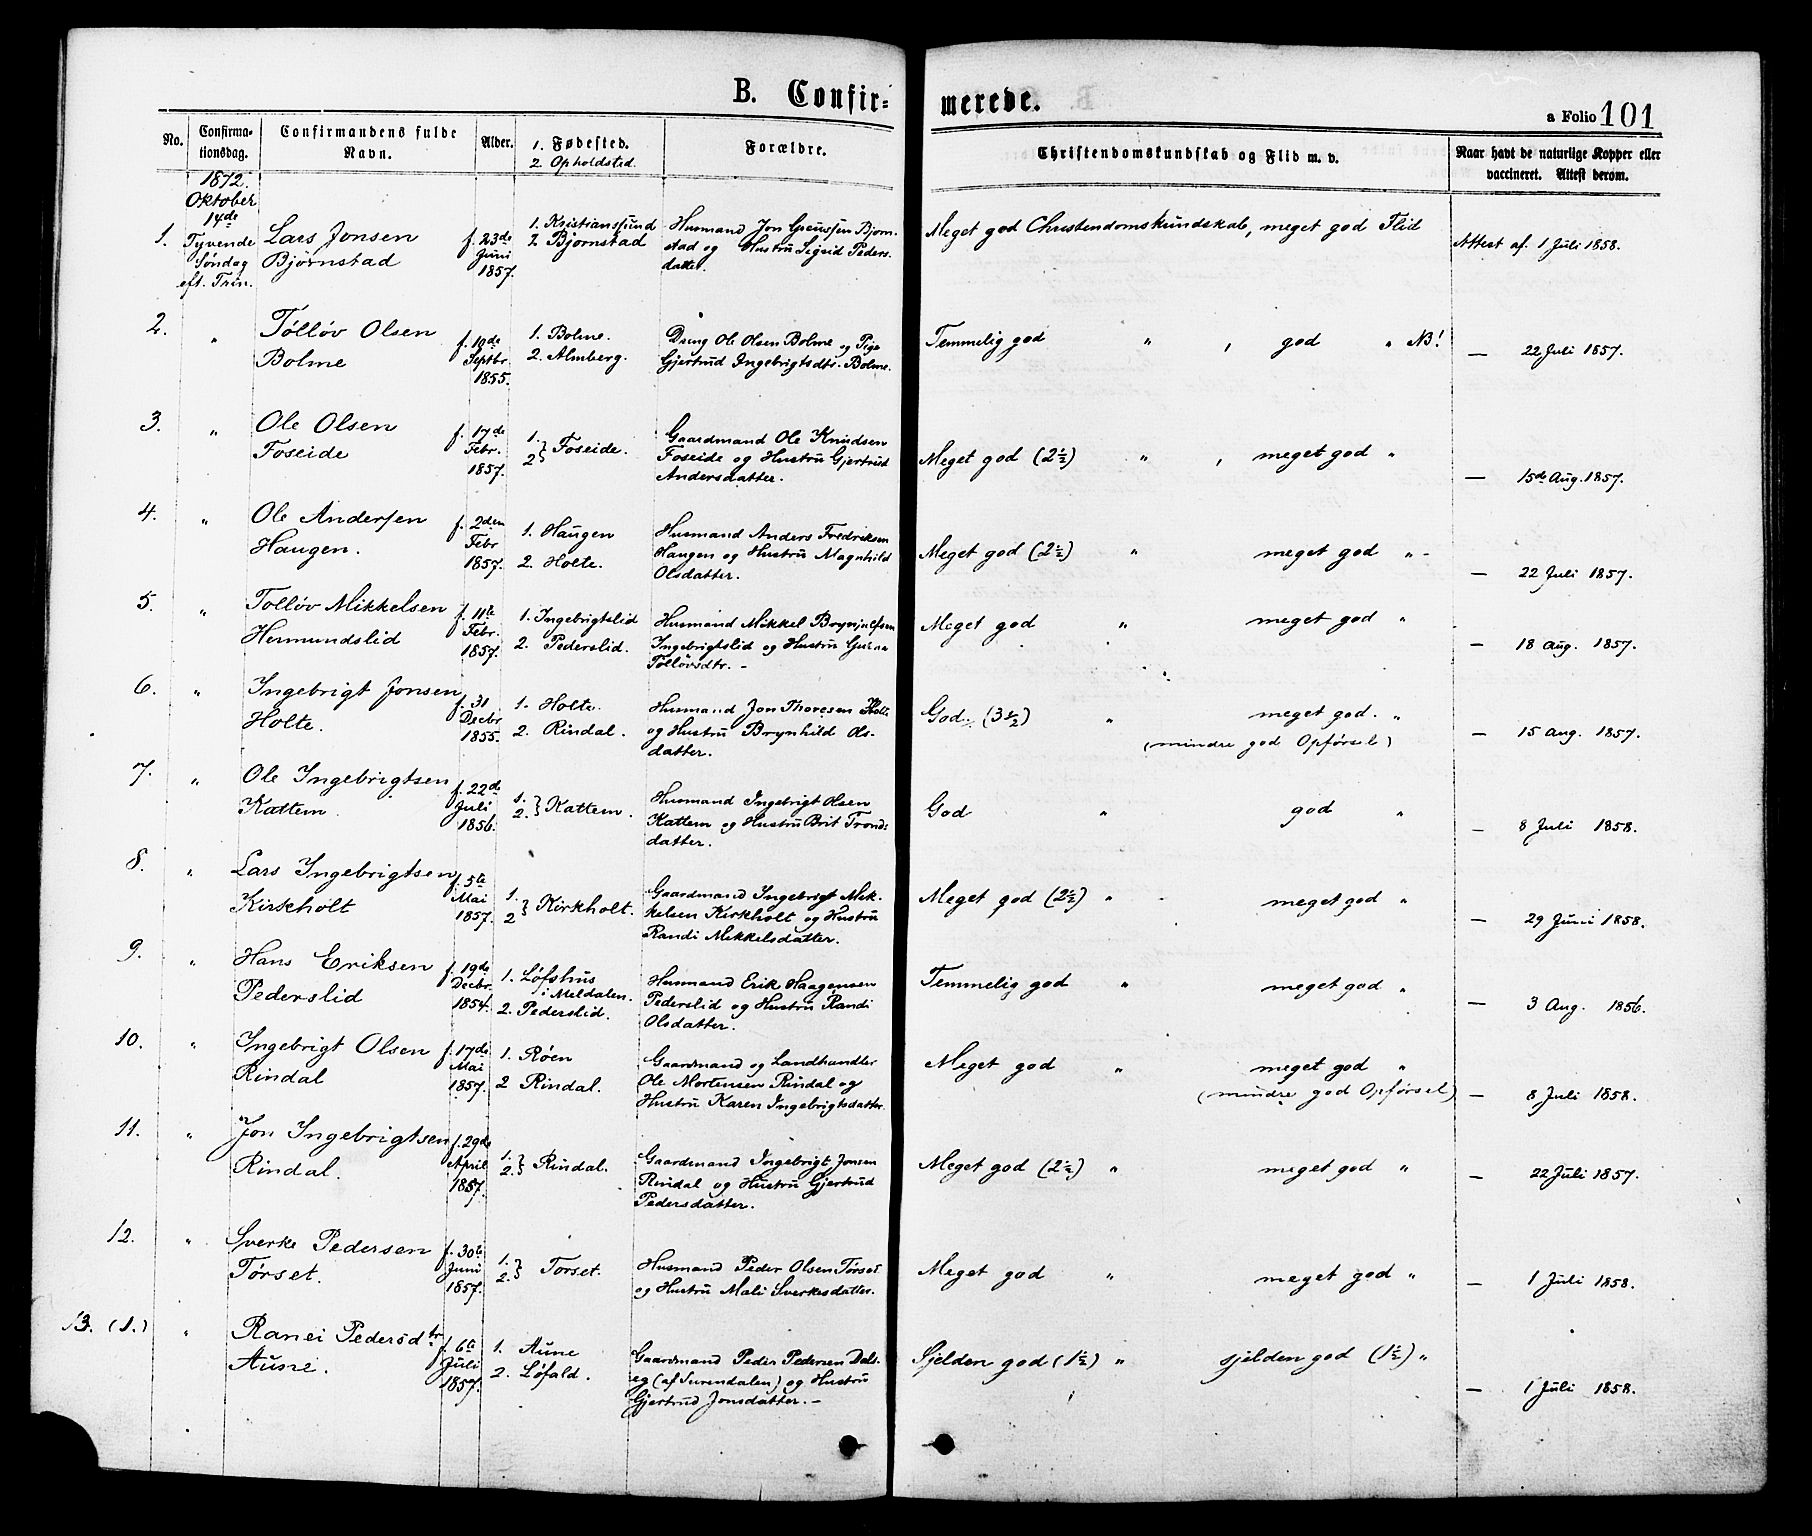 B. Confirmerede.
a Folio 101
No.
Confirmationsdag.
Confirmandens fulde Navn.
Alder.
1. Fødested.
2. Opholdsted.
Forældre.
Christendomskundskab og Flid m. v.
Naar havt de naturlige Kopper eller vaccineret. Attest derom.
1872.
Oktober
14de
1. Tyvende
Søndag
eft. Trin.
Lars Jonsen
Bjørnstad
f. 23de
Juni
1857.
1. Kristianssund
2. Bjørnstad
Husmand Jon Bjørn-
stad og Hustru Sigrid Peders-
datter.
Meget god Christendomskundskab, meget god Flid
Attest af 1 Juli 1858.
2. "
Tølløv Olsen
Bolme
f. 19de
Septbr.
1855.
1. Bolme.
2. Almberg.
Dreng Ole Olsen Bolme og Pige
Gjertrud Ingebrigtsdtr. Bolme.
Temmelig god " , god " NB!
— 22 Juli 1857.
3. "
Ole Olsen
Foseide
f. 17de
Febr.
1857.
1.
2 } Foseide.
Gaardmand Ole Knudsen
Foseide og Hustru Gjertrud
Andersdatter.
Meget god (2½) " , meget god "
— 15de Aug. 1857.
4. "
Ole Andersen
Haugen.
f. 2den
Febr
1857.
1. Haugen
2. Holte.
Husmand Anders Fredriksen
Haugen og Hustru Magnhild
Olsdatter.
Meget god (2½) " meget god " -
— 22 Juli 1857.
5. "
Tolløv Mikkelsen
Hermundslid
f. 11te
Febr.
1857.
1. Ingebrigtslid
2. Pederslid.
Husmand Mikkel Brynjulfsen
Ingebrigtslid og Hustru
Tølløvsdtr. -
Meget god " meget god "
— 18 Aug. 1857.
6. "
Ingebrigt Jonsen
Holte.
f. 31
Decbr
1855.
1. Holte.
2. Rindal.
Husmand Jon Thoresen Holte
og Hustru Brynhild Ols-
datter.
God. (3½) " meget god. "
(mindre god Opførsel)
— 15 Aug. 1857.
7. "
Ole Ingebrigtsen
Kattem.
f. 22de
Juli
1856.
1.
2. } Kattem.
Husmand Ingebrigt Olsen
Kattem og Hustru Brit Tronds-
datter.
God " god "
— 8 Juli 1858.
8. "
Lars Ingebrigtsen
Kirkholt
f. 5te
Mai
1857.
1.
2 } Kirkholt.
Gaardmand Ingebrigt Mik-
kelsen Kirkholt og Hustru
Randi Mikkelsdatter.
Meget god (2½) " - meget god "
— 29 Juni 1858.
9. "
Hans Eriksen
Pederslid
f. 19de
Decbr.
1854.
1. Løfshus
i Meldalen.
2. Pederslid.
Husmand Erik Haagensen
Pederslid og Hustru Randi
Olsdatter.
Temmelig god " meget god "
— 3 Aug. 1856.
10. "
Ingebrigt Olsen
Rindal
f. 17de
Mai
1857.
1. Røen
2 Rindal.
Gaardmand og Landhandler
Ole Mortensen Rindal og
Hustru Karen Ingebrigtsdatter.
Meget god " meget god "
(mindre god Opførsel)
— 8 Juli 1858.
11. "
Jon Ingebrigtsen
Rindal.
f. 29de
April
1857.
1.
2. } Rindal.
Gaardmand Ingebrigt Jonsen
Rindal og Hustru Gjertrud
Pedersdatter.
Meget god (2½) " meget god "
— 22 Juli 1857.
12. "
Sverke Pedersen
Tørset.
f. 30te
Juni
1857.
1.
2. } Torset.
Husmand Peder Olsen Tørset
og Hustru Mali Sverkesdatter.
Meget god " meget god "
— 1 Juli 1858.
13. (1.) "
Ranei Pedersdtr
Aune.
f. 6te
Juli
1857.
1. Aune
2. Løfald.
Gaardmand Peder Pedersen Dals-
eg (af Surendalen) og Hustru
Gjertrud Jonsdatter. -
Sjelden god (1½) " sjelden god (1½) "
— 1 Juli 1858.